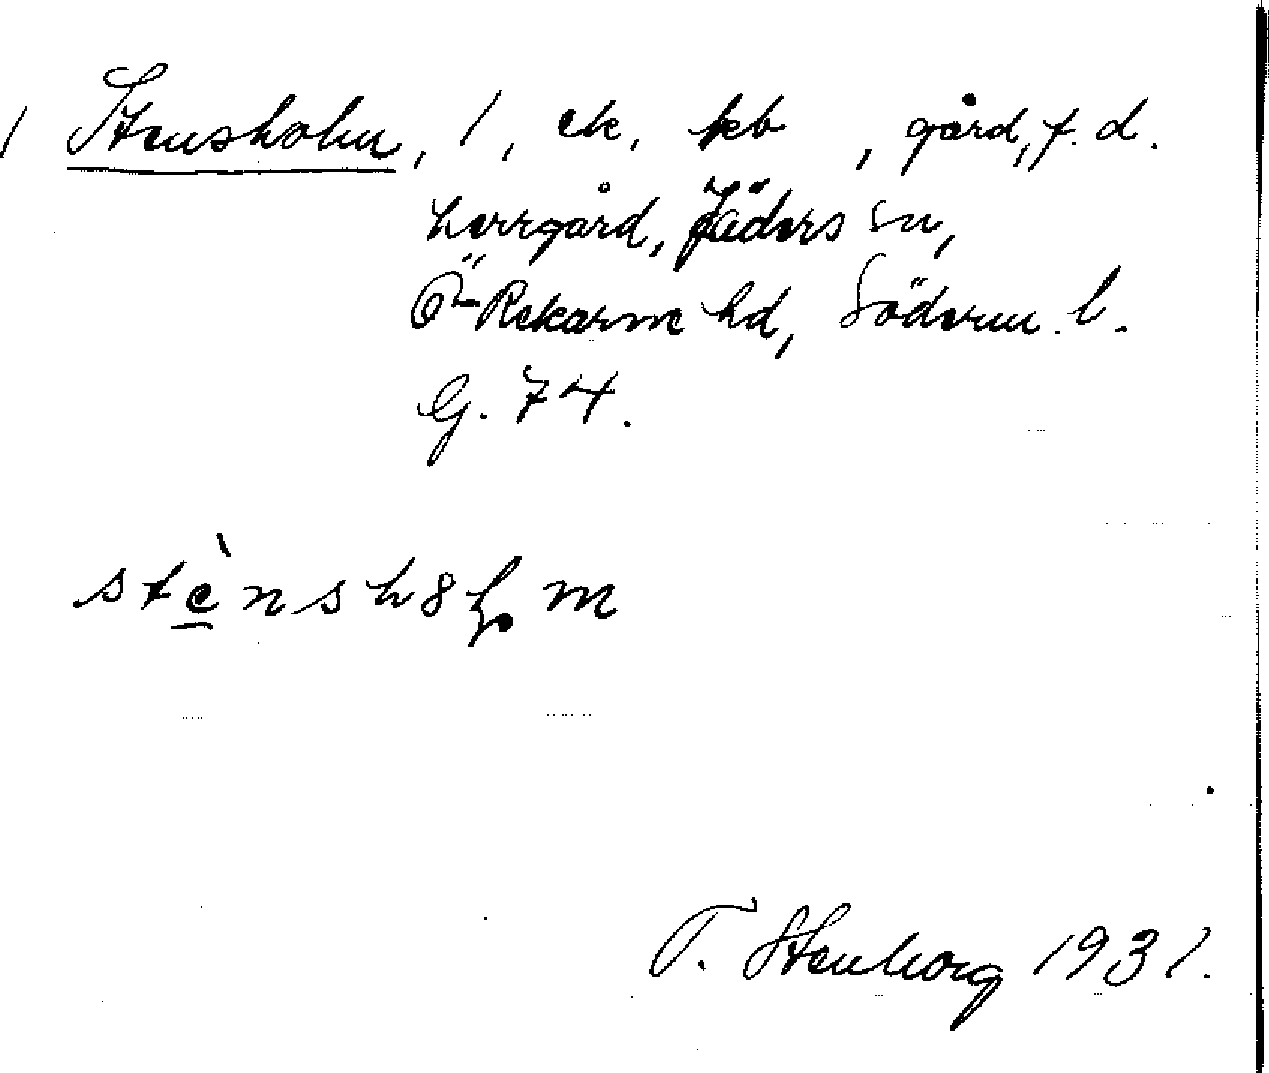 / Stensholm, 1, ek. kb , gård, f. d.
herrgård, Jäders sn,
Ö. Rekarne hd, Söderm. l.
G. 74.
stènsh8ḷm
T. Stenborg 1931.